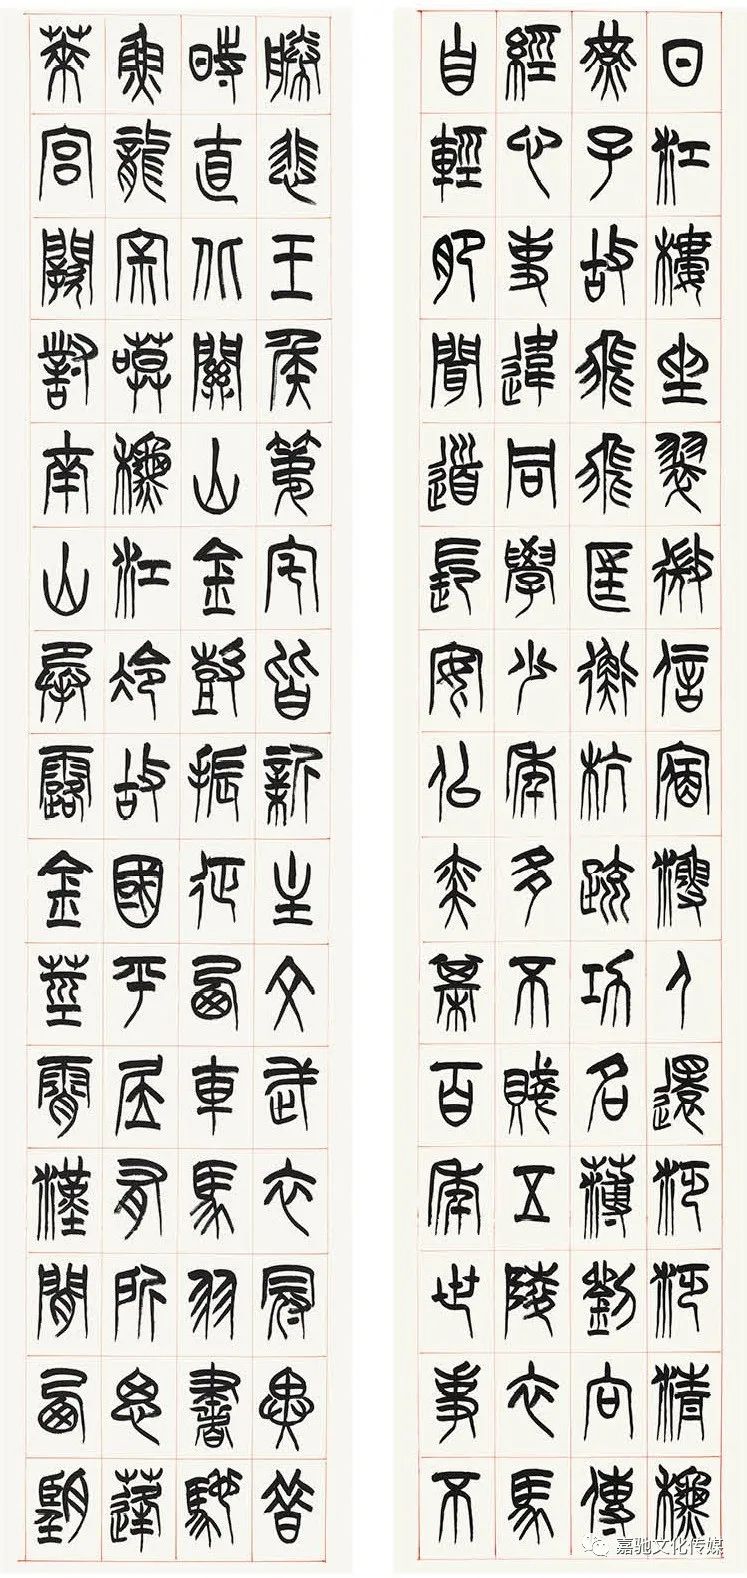 日江樓坐翠微信宿漁人還泛泛清秋
燕子故飛飛匡衡抗疏功名薄劉向傳
經心事違同學少年多不賤五陵衣馬
自輕肥聞道長安似弈棊百年世事不
勝悲王侯第宅皆新主文武衣冠異昔
時直北關山金鼓振征西車馬羽書馳
魚龍寂嗼秋江冷故國平居有所思蓬
萊宮闕對南山承露金莖霄漢間西望
嘉驰文化传媒